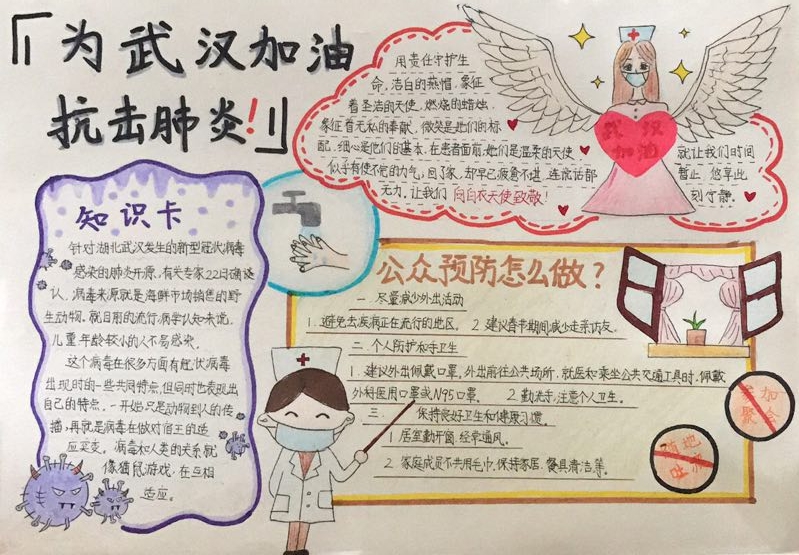 「为武汉加油
抗击肺炎！」
用责任守护生
命，洁白的燕帽，象征
着圣洁的天使，燃烧的蜡烛，
象征着无私的奉献，微笑是她们的标
配，细心是他们的基本，在患者面前，她们是温柔的天使
似乎有使不完的力气，回了家，却早已疲惫不堪，连说话都
无力，让我们向白衣天使致敬！
就让我们时间
暂止，悠享此
刻宁静。
武汉
加油
知识卡
针对湖北武汉发生的新型冠状病毒
感染的肺炎开源，有关专家22日确
认，病毒来源就是海鲜市场销售的野
生动物，就目前的流行病学认知来说，
儿童年龄较小的人不易感染。
这个病毒在很多方面有冠状病毒
出现时的一些共同特点，但同时也表现出
自己的特点，一开始只是动物到人的传
播，再就是病毒在做对宿主的适
应突变。病毒和人类的关系就
像猫鼠游戏，在互相
适应。
公众预防怎么做？
一 尽量减少外出活动
1. 避免去疾病正在流行的地区。 2 建议春节期间减少走亲访友。
二 个人防护和守卫生
1. 建议外出佩戴口罩。外出前往公共场所，就医和乘坐公共交通工具时，佩戴
外科医用口罩或N95口罩。 2. 勤洗手，注意个人卫生。
三 保持良好卫生和健康习惯。
1 居室勤开窗，经常通风。
2. 家庭成员不共用毛巾，保持家居、餐具清洁等。
参加
聚会
随地
吐痰